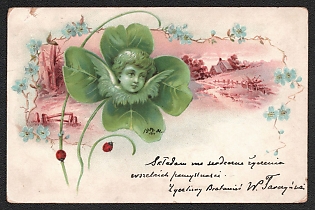 Składam me serdeczne życzenia
wszelkich pomyślności
Życzliwy Bratanić W.